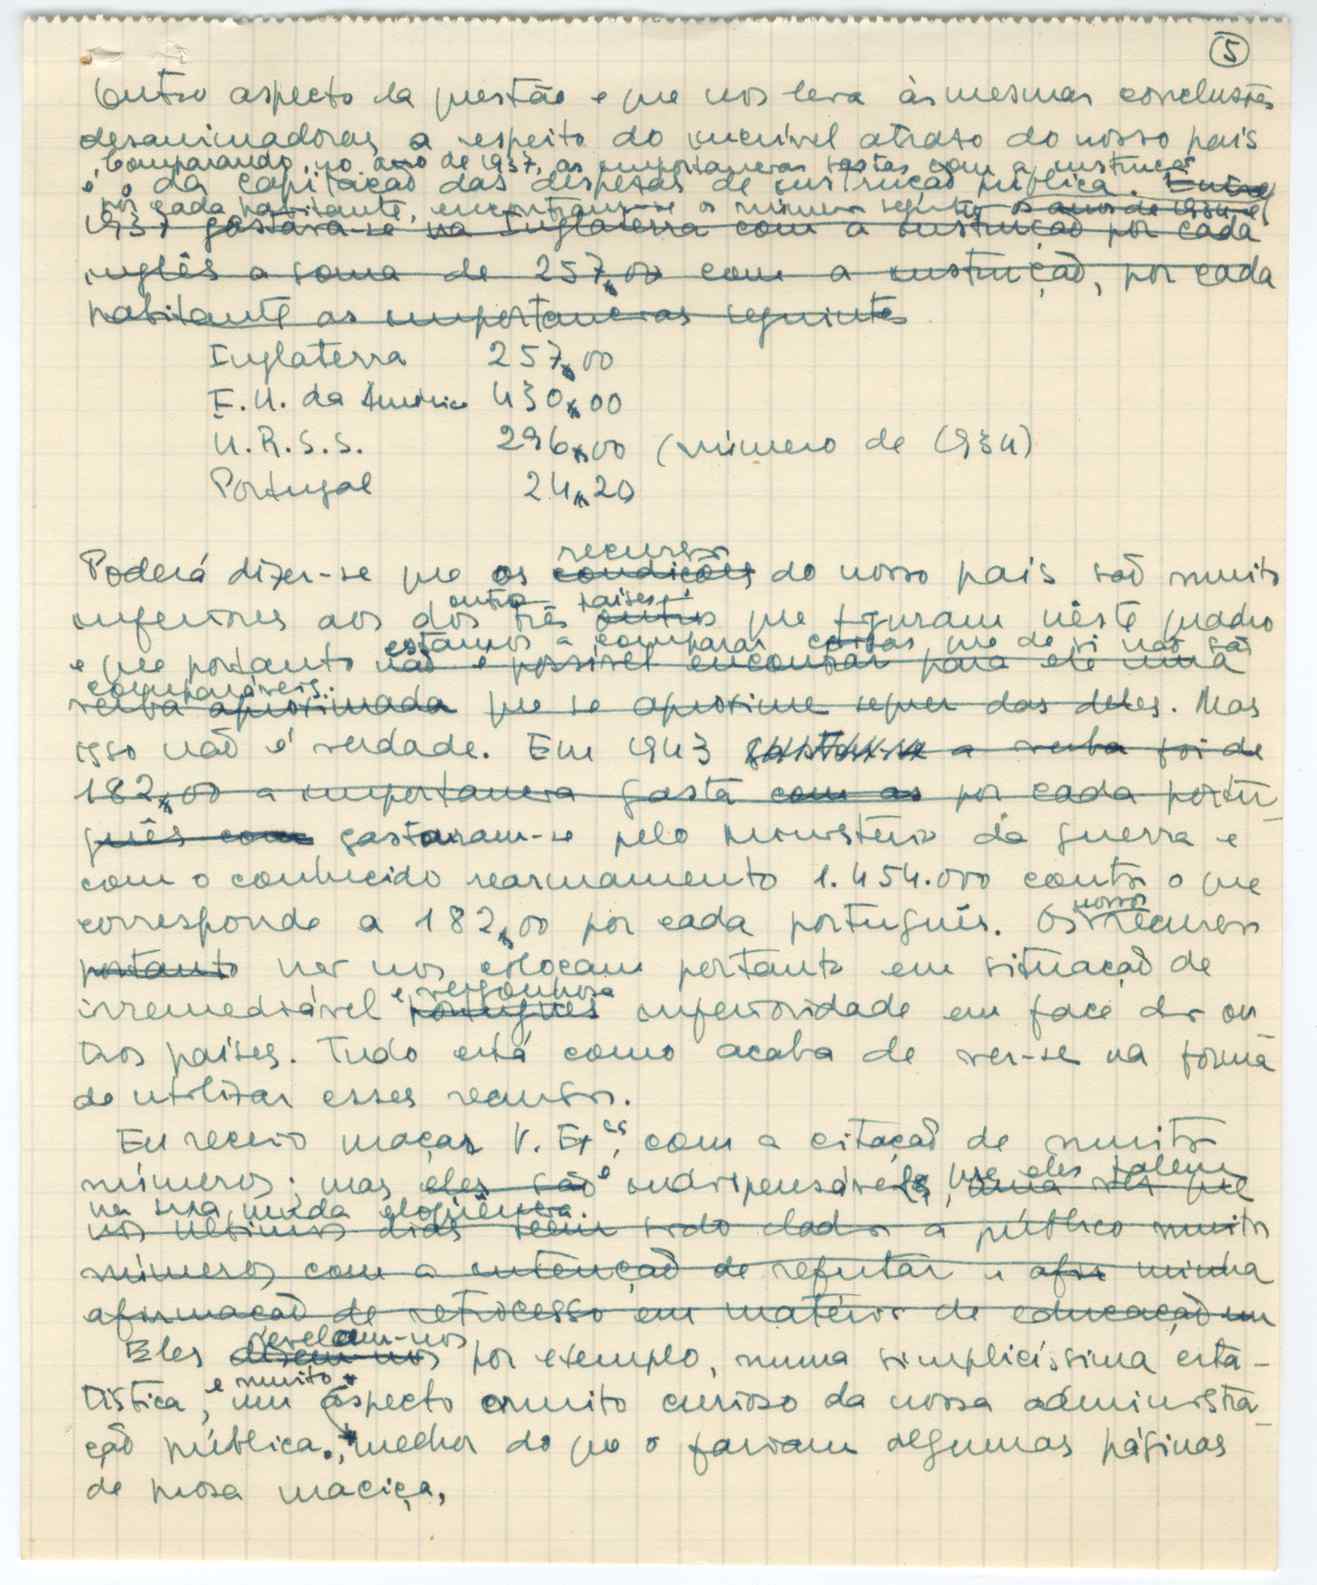 5
Outro aspecto da questão e que nos leva às mesmas conclusões
desanimadoras a respeito do incrível atraso do nosso país
Comparando, no ano de 1937, as importancias gastas com a instrução
é o da capitação das despesas de instrução pública. Entre
por cada habitante, encontram-se os números seguintes os anos de 1934 e
1937 gastava-se na Inglaterra com a instrução por cada
inglês a soma de 257$00 com a instrução, por cada
habitante as importancias seguintes
Inglaterra 257$00
E.U. da América 430$00
U.R.S.S. 296$00 (número de 1934)
Portugal 24$20
recursos
Poderá dizer-se que os condições do nosso país são muito
outros países
inferiores aos dos três outros que figuram nêste quadro
estamos a comparar coisas que de si não são
e que portanto não é possível encontrar para ele uma
comparáveis.
verba aproximada que se aproxime sequer das deles. Mas
isso não é verdade. Em 1943 gastou-se a verba foi de
182$00 a importancia gasta com as por cada portu-
guês com gastaram-se pelo Ministério da guerra e
com o conhecido rearmamento 1.454.000 contos o que
corresponde a 182$00 por cada português. Os recursos
nossos
portanto nos colocam portanto em situação de
e vergonhosa
irremediável português inferioridade em face dos ou-
tros países. Tudo está como acaba de ver-se na forma
de utilizar esses recursos.
Eu receio maçar V. Exas. com a citação de muitos
números; mas eles são é indispensável que eles falem
uma vez que
na sua muda eloqüência.
nos ultimos dias teem sido dados a público muitos
números com a intenção de refutar a afir minha
afirmação de retrocesso em matéria de educação um
revelam-nos
Eles dizem-nos por exemplo, numa simplicíssima esta-
e muito
tística, um aspecto muito curioso da nossa administra-
ção pública, melhor do que o fariam algumas páginas
de prosa maciça,